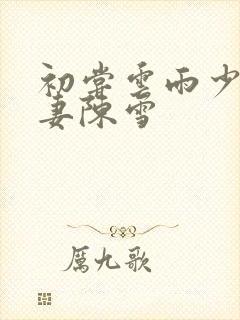 初尝雲雨少
妻陳雪
厲九歌